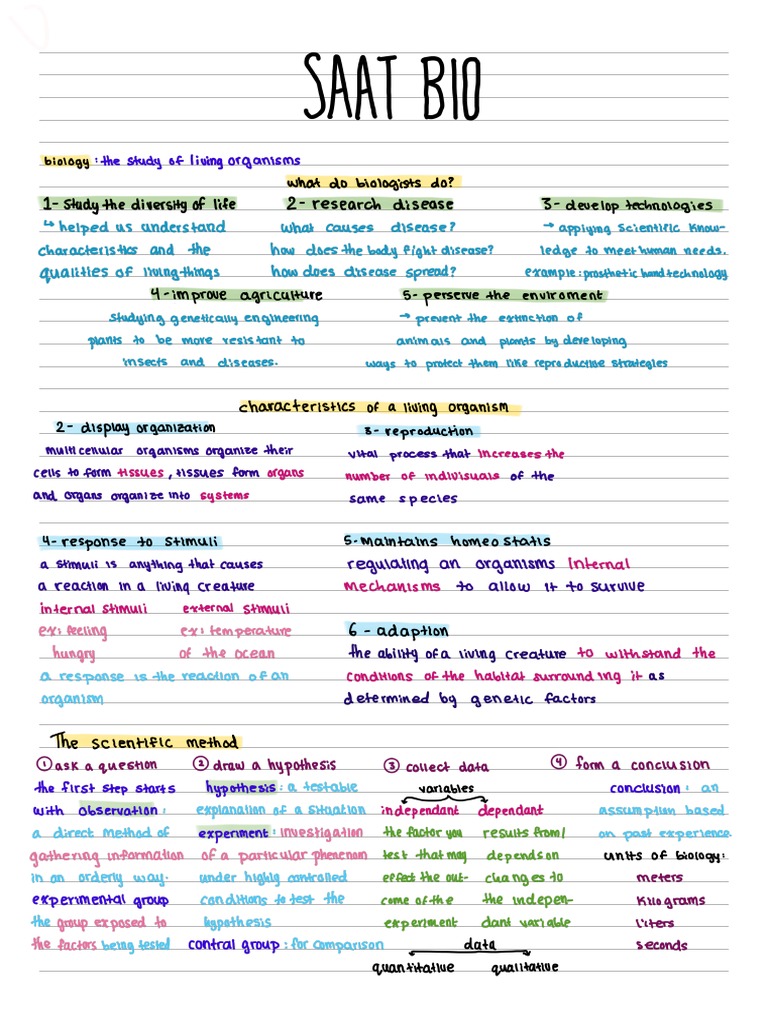 SAAT BIO
biology : the study of living organisms
what do biologists do?
1- study the diversity of life
↳ helped us understand
characteristics and the
qualities of living things
2- research disease
what causes disease?
how does the body fight disease?
how does disease spread?
3- develop technologies
→ applying scientific know-
ledge to meet human needs.
example : prosthetic hand technology
4- improve agriculture
studying genetically engineering
plants to be more resistant to
insects and diseases.
5- perserve the enviroment
→ prevent the extinction of
animals and plants by developing
ways to protect them like reproductive strategies
characteristics of a living organism
2- display organization
multicellular organisms organize their
cells to form tissues, tissues form organs
and organs organize into systems
3- reproduction
vital process that increases the
number of indivisuals of the
same species
4- response to stimuli
a stimuli is anything that causes
a reaction in a living creature
internal stimuli
ex: feeling
hungry
external stimuli
ex: temperature
of the ocean
a response is the reaction of an
organism
5- Maintains homeostatis
regulating an organisms internal
mechanisms to allow it to survive
6 - adaption
the ability of a living creature to withstand the
conditions of the habitat surrounding it as
determined by genetic factors
The scientific method
① ask a question
the first step starts
with observation :
a direct method of
gathering information
in an orderly way.
experimental group
the group exposed to
the factors being tested
② draw a hypothesis
hypothesis : a testable
explanation of a situation
experiment : investigation
of a particular phenenom
under highly controlled
conditions to test the
hypothesis
control group : for comparison
③ collect data
variables
independant
the factor you
test that may
effect the out-
come of the
experiment
dependant
results from/
depends on
changes to
the indepen-
dant variable
data
quantitative
qualitative
④ form a conclusion
conclusion : an
assumption based
on past experience.
units of biology:
meters
kilograms
liters
seconds